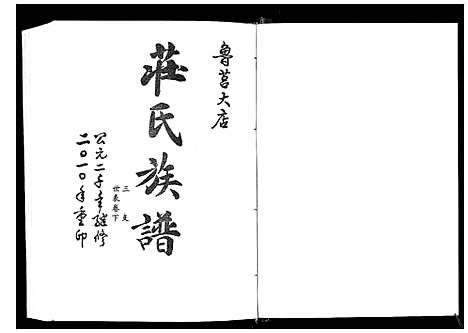 鲁莒大店
莊氏族譜
三支
世表卷下
公元二千年继修
二〇一〇年重印